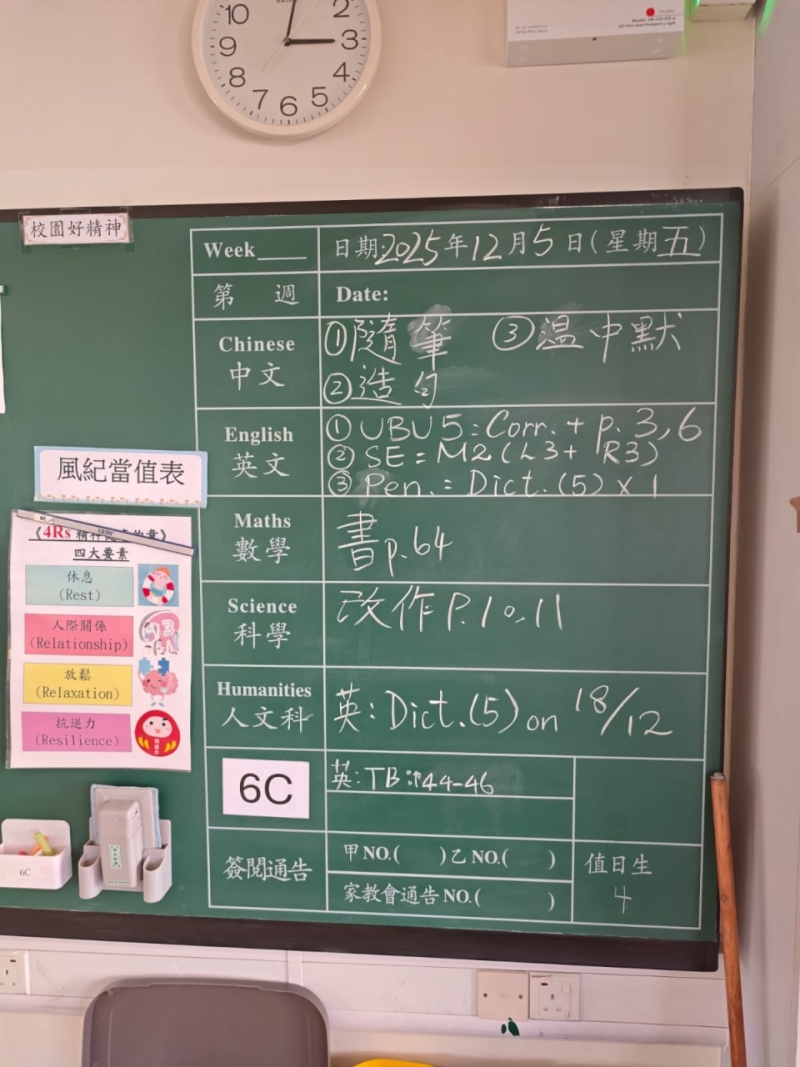 10
2
9
3
8
4
7
6
5
校園好精神
Week____ 日期:2025年12月5日(星期五)
第 週 Date:
Chinese 中文
①隨筆 ③温中默
②造句
English 英文
① UBU5: Corr. + p. 3, 6
② SE = M2 (L3 + R3)
③ Pen. = Dict. (5) x 1
Maths 數學
書 p.64
Science 科學
改作 P.10, 11
Humanities 人文科
英: Dict. (5) on 18/12
6C
英: TB: p44-46
簽閱通告
甲 NO.( ) 乙 NO.( )
家教會通告 NO.( )
值日生
4
風紀當值表
《4Rs 精神
四大要素
休息
(Rest)
人際關係
(Relationship)
放鬆
(Relaxation)
抗逆力
(Resilience)
6C